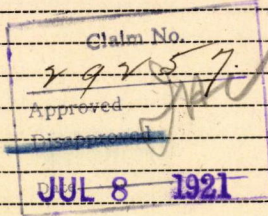 Claim No.
29257.
Approved
Disapproved
JUL 8 1921